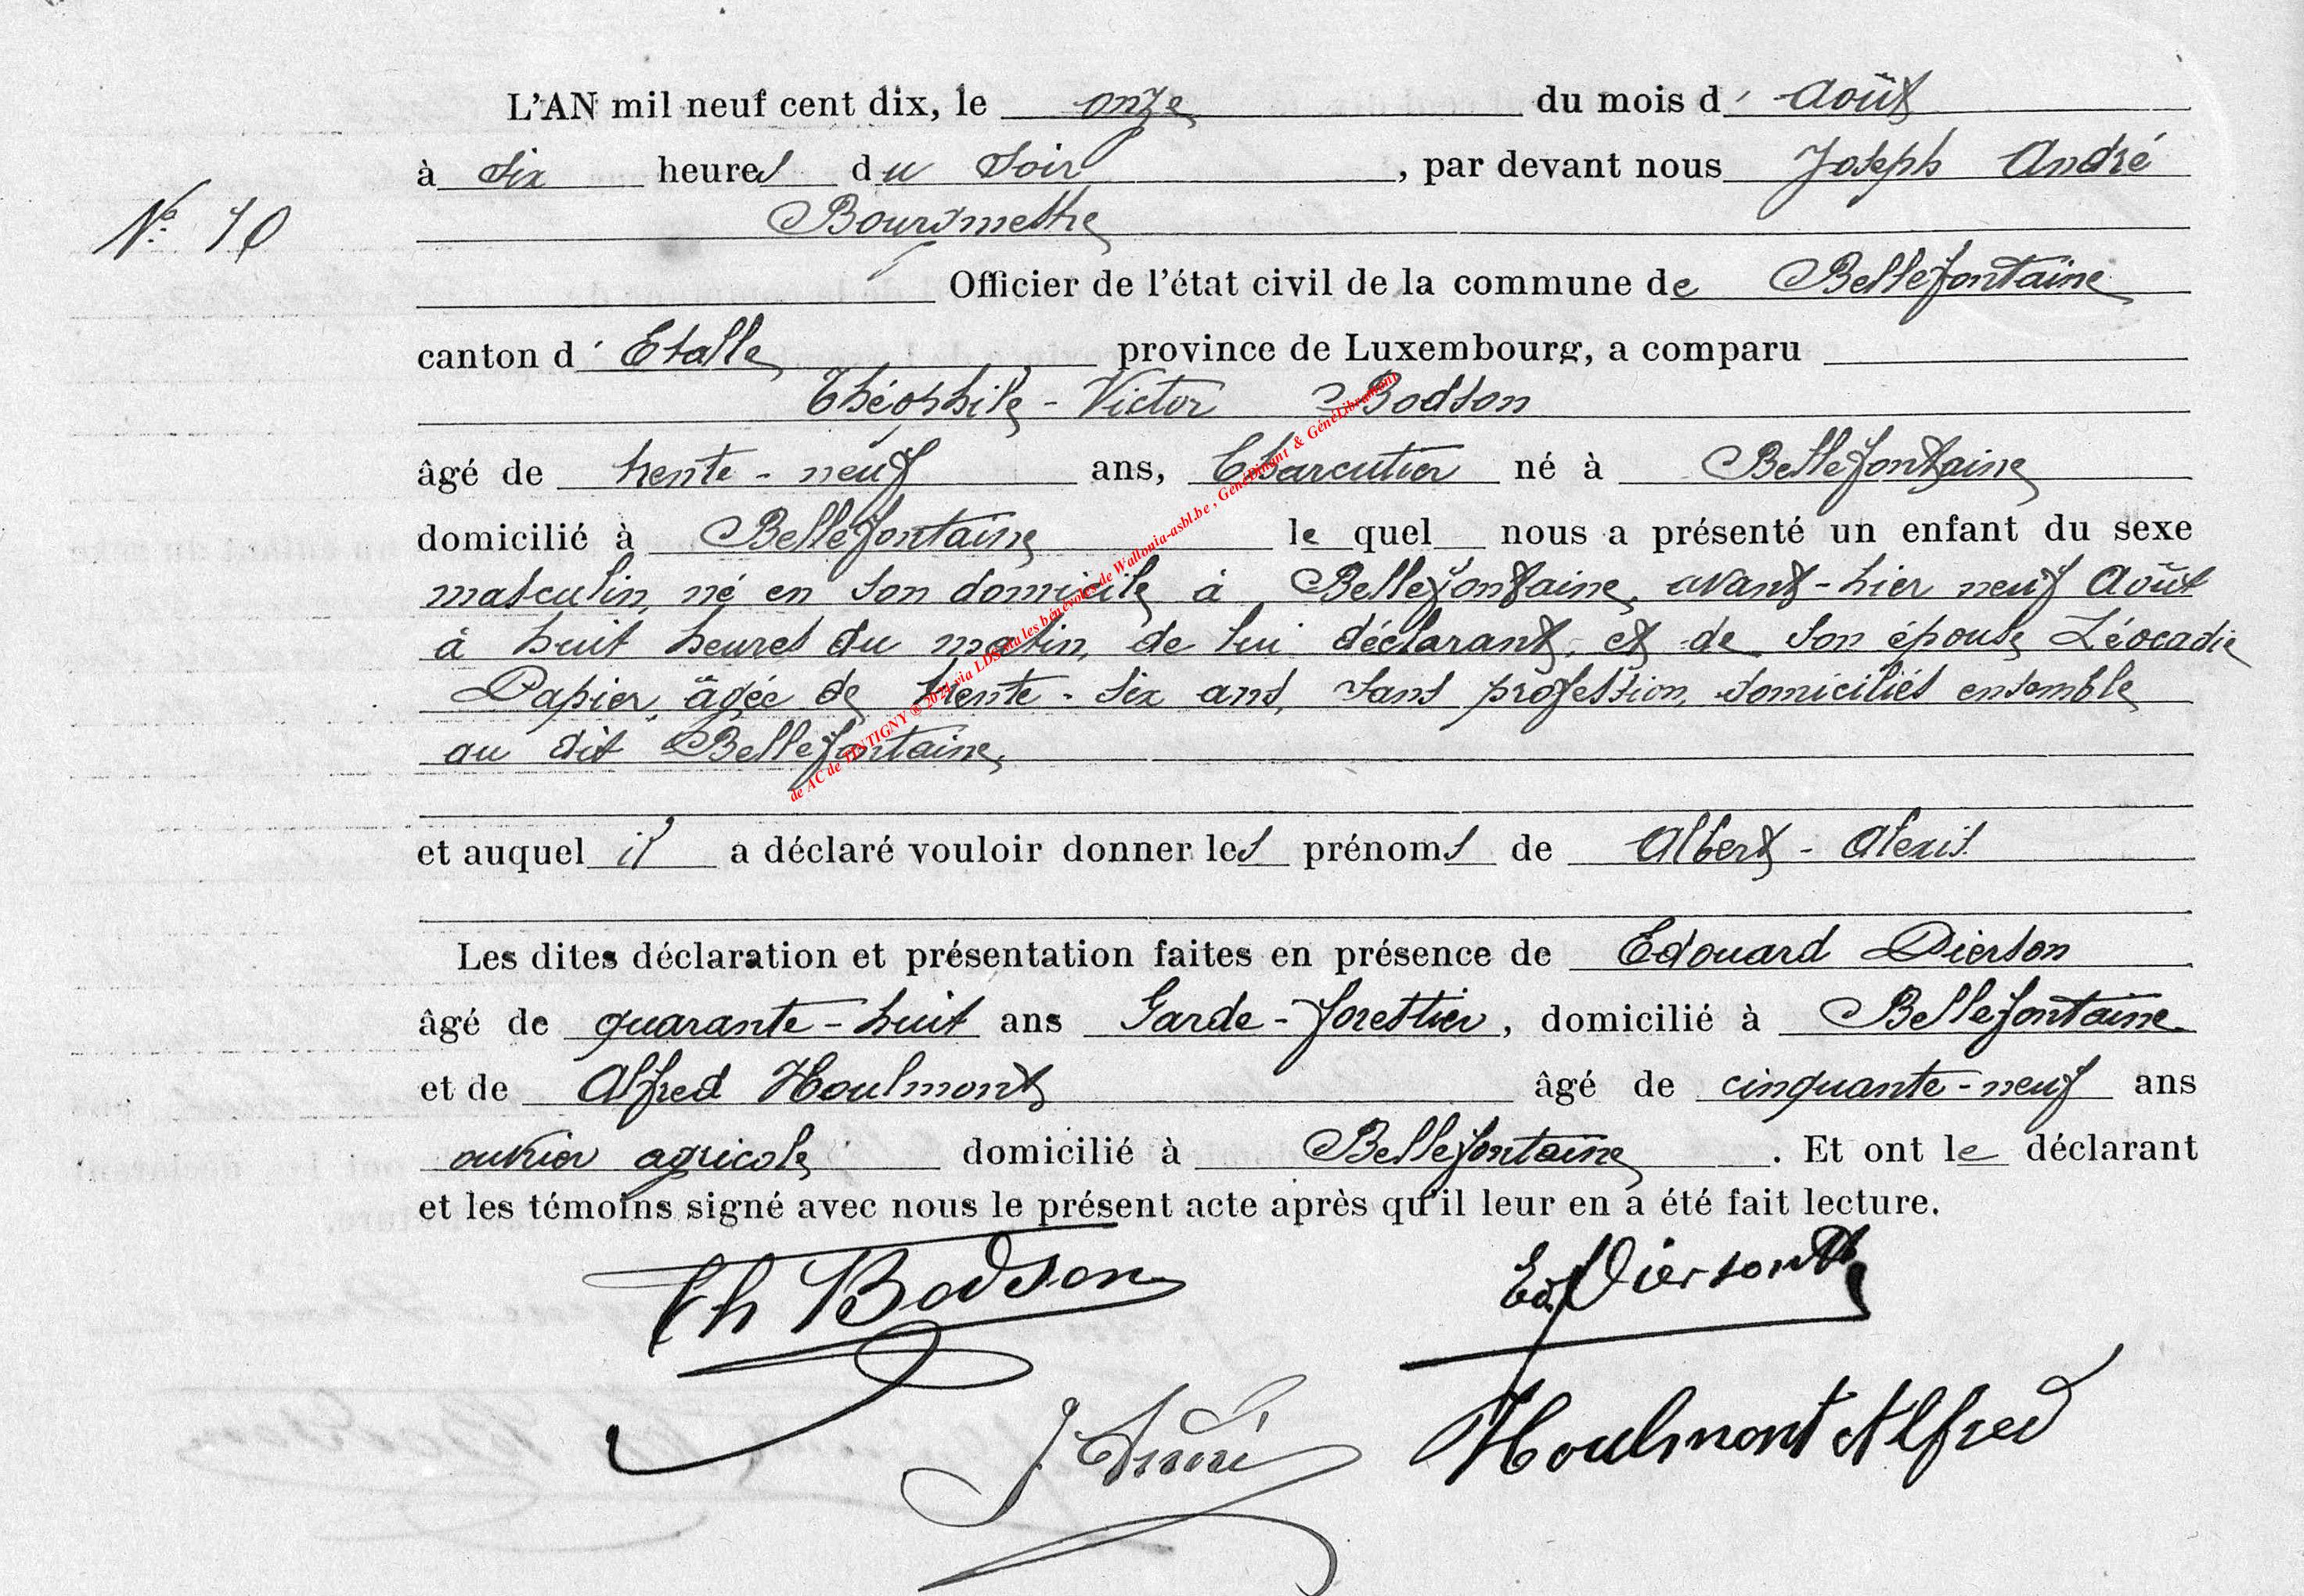 L'AN mil neuf cent dix, le onze du mois d' Août
à six heures du soir, par devant nous Joseph André
N° 10
Bourgmestre
Officier de l'état civil de la commune de Bellefontaine
canton d' Etalle province de Luxembourg, a comparu
Théophile - Victor Bodson
âgé de trente - neuf ans, Charcutier né à Bellefontaine
domicilié à Bellefontaine le quel nous a présenté un enfant du sexe
masculin, né en son domicile à Bellefontaine, avant-hier neuf Août
à huit heures du matin, de lui déclarant, et de son épouse Léocadie
Papier, âgée de trente - six ans, sans profession, domiciliés ensemble
au dit Bellefontaine,
de AC de TINTIGNY ® 2021 via LDS via les bénévoles de Wallonia-asbl.be, GénéDinant & GénéLibramont
et auquel il a déclaré vouloir donner les prénoms de Albert - Alexis.
Les dites déclaration et présentation faites en présence de Edouard Dierson
âgé de quarante - huit ans Garde - forestier, domicilié à Bellefontaine
et de Alfred Houlmont âgé de cinquante - neuf ans
ouvrier agricole domicilié à Bellefontaine. Et ont le déclarant
et les témoins signé avec nous le présent acte après qu'il leur en a été fait lecture.
Th Bodson
Ed Dierson
J. André
Houlmont Alfred